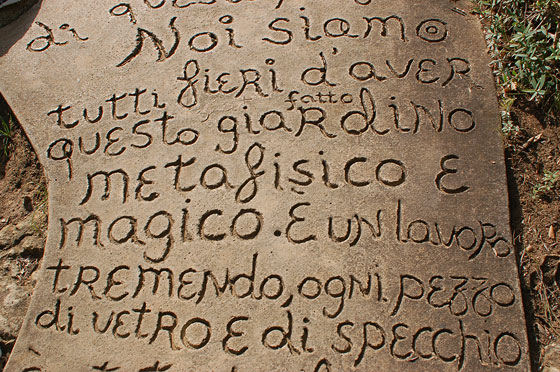 di ques
Noi siamo
tutti fieri d'aver
fatto
questo giardino
metafisico e
magico. È un lavoro
tremendo, ogni pezzo
di vetro e di specchio